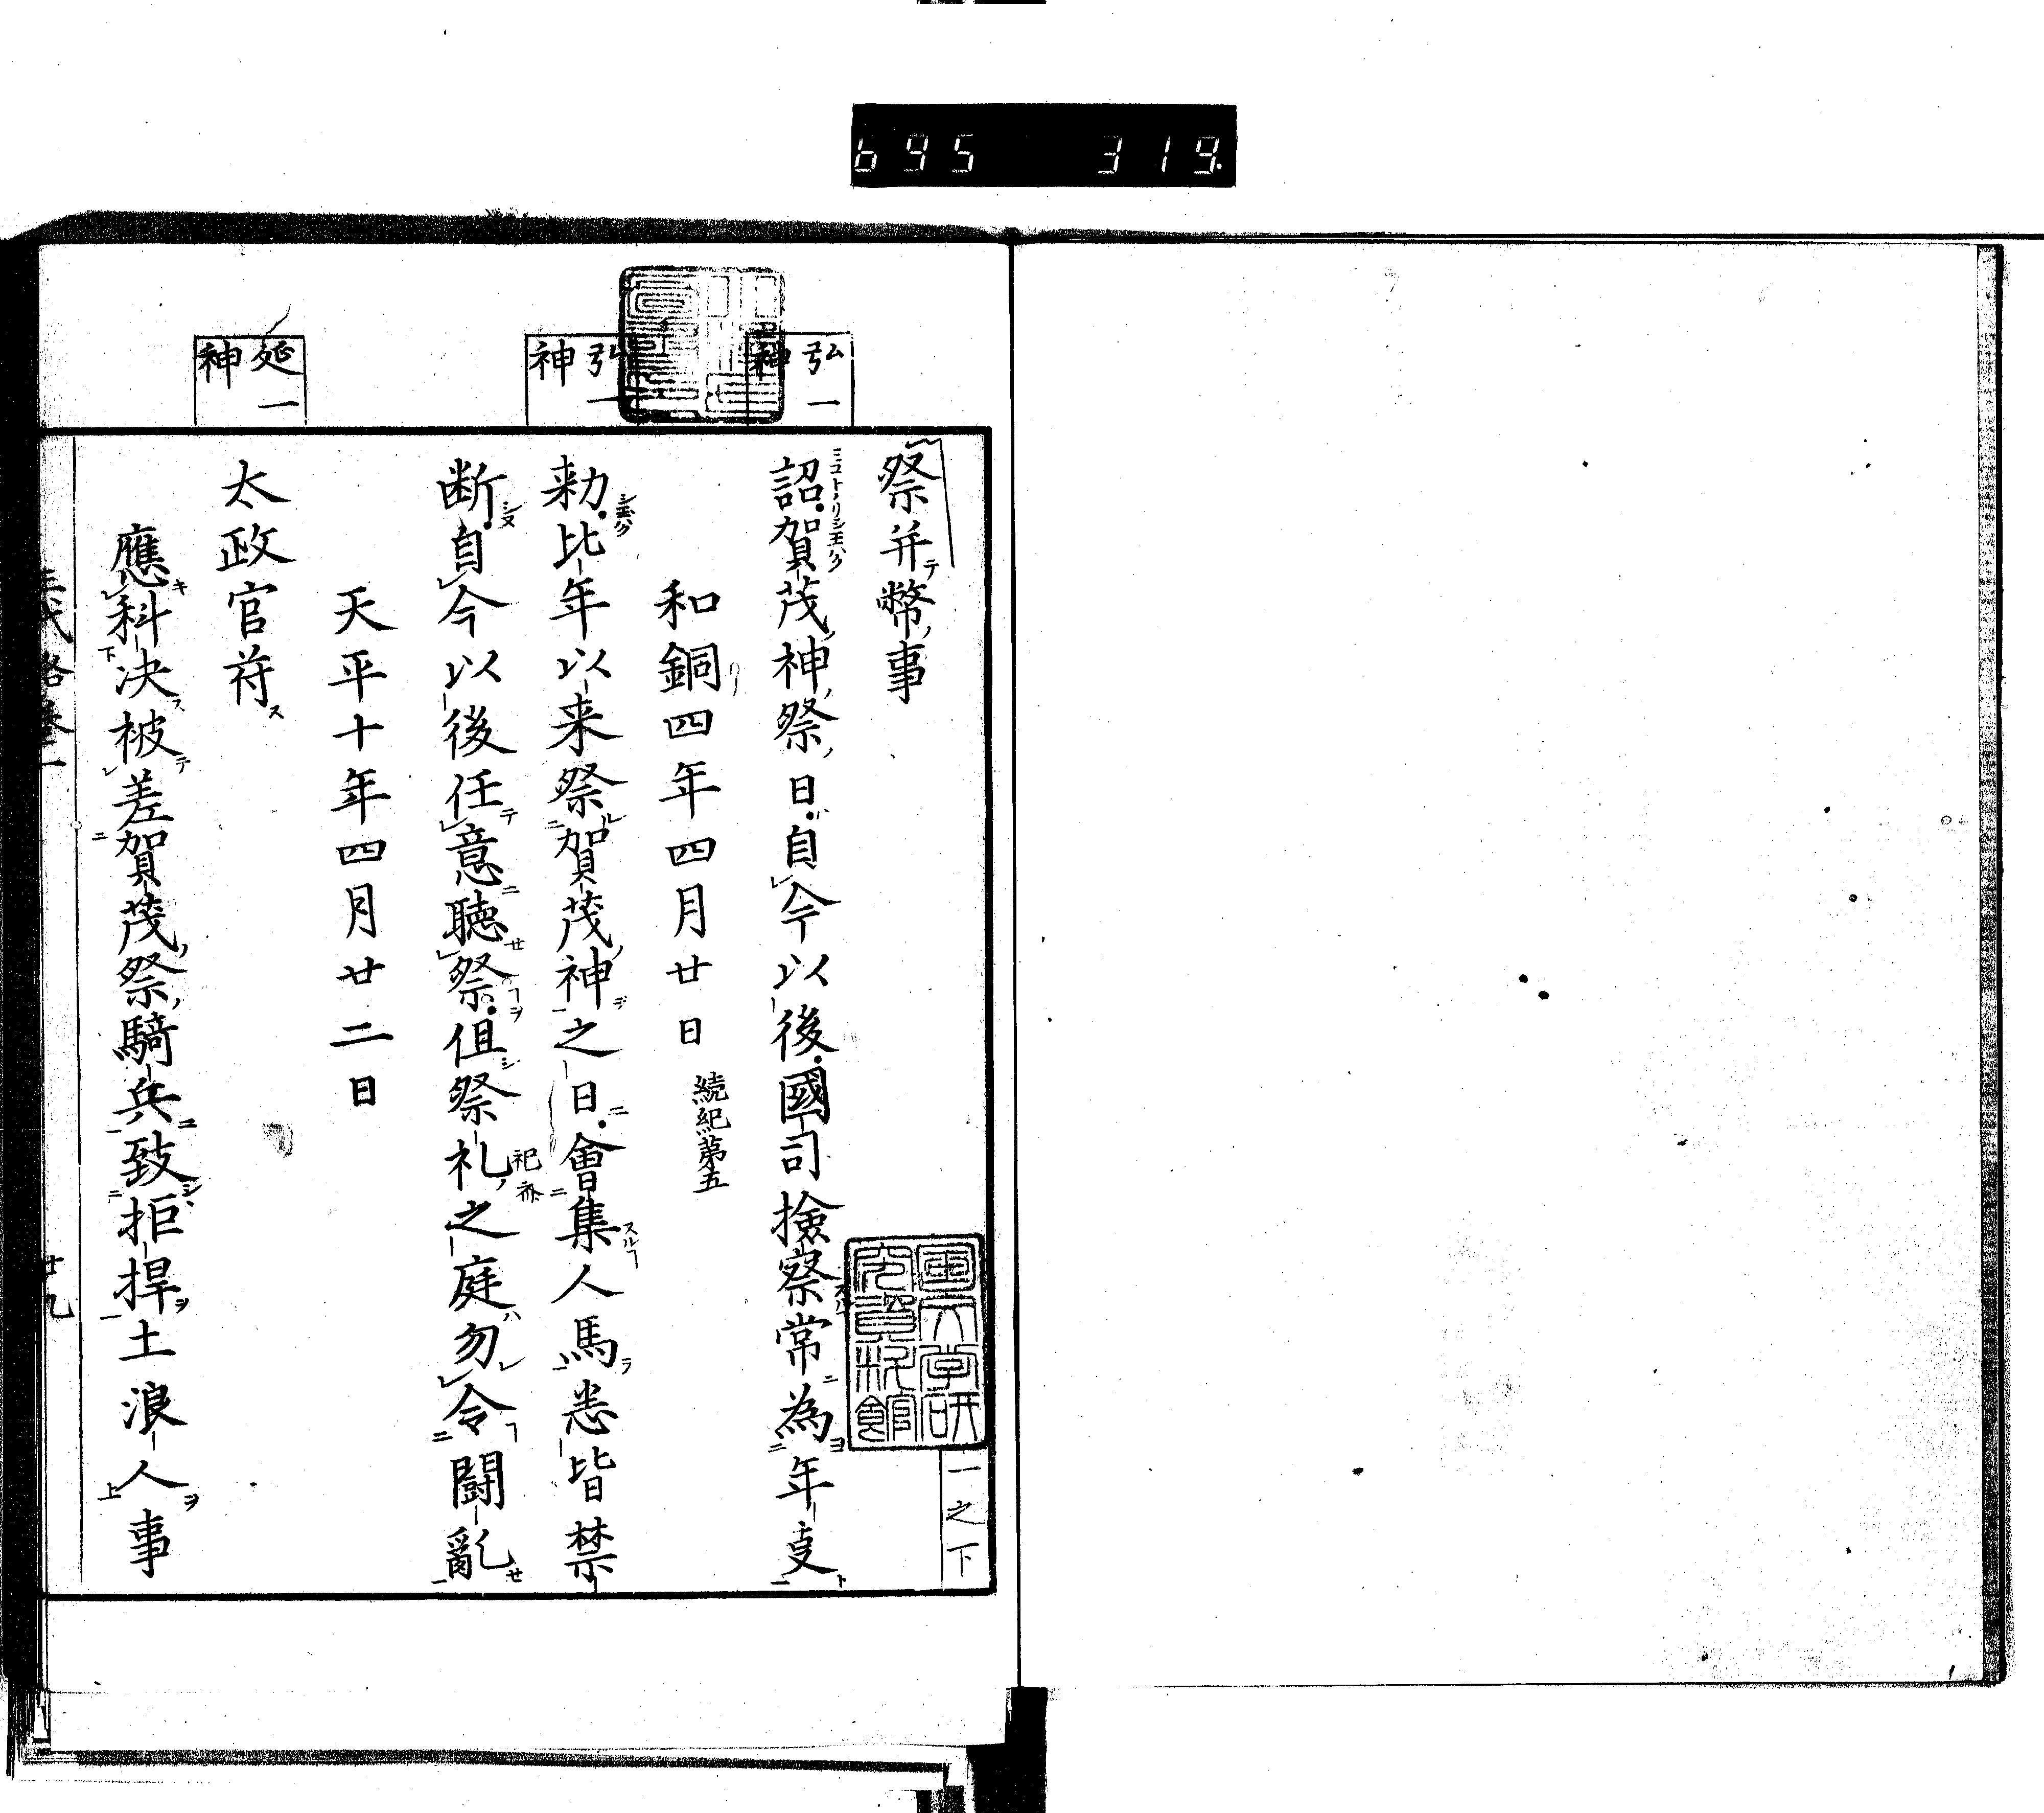 695 319
祭并幣事
一之下
弘一
神
詔賀茂神祭日自今以後國司撿察常為年
和銅四年四月廿日 続紀第五
弘一
神
勅比年以来祭賀茂神之日會集人馬悉皆禁
断自今以後任意聴祭但祭礼之庭勿令闘亂
天平十年四月廿二日
延一
神
太政官符
應科决被差賀茂祭騎兵致拒捍土浪人事
廿九
国文学研
究資料館